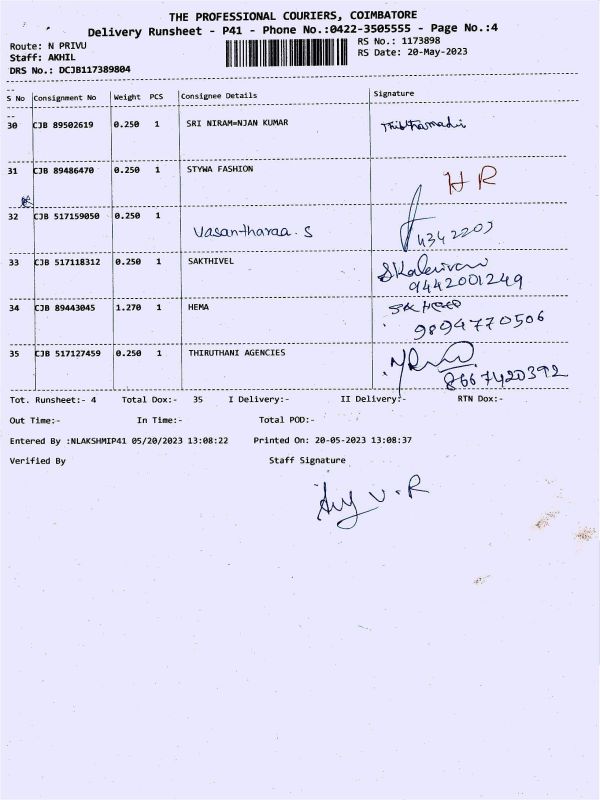 THE PROFESSIONAL COURIERS, COIMBATORE
Delivery Runsheet - P41 - Phone No.:0422-3505555 - Page No.:4
Route: N PRIVU
RS No.: 1173898
Staff: AKHIL
RS Date: 20-May-2023
DRS No.: DCJB117389804
S No Consignment No Weight PCS Consignee Details Signature
30 CJB 89502619 0.250 1 SRI NIRAM=NJAN KUMAR
31 CJB 89486470 0.250 1 STYWA FASHION HR
32 CJB 517159050 0.250 1 Vasantharaa. S
33 CJB 517118312 0.250 1 SAKTHIVEL
9442001249
34 CJB 89443045 1.270 1 HEMA
9894770506
35 CJB 517127459 0.250 1 THIRUTHANI AGENCIES
8667420392
Tot. Runsheet:- 4 Total Dox:- 35 I Delivery:- II Delivery:- RTN Dox:-
Out Time:- In Time:- Total POD:-
Entered By :NLAKSHMIP41 05/20/2023 13:08:22 Printed On: 20-05-2023 13:08:37
Verified By Staff Signature